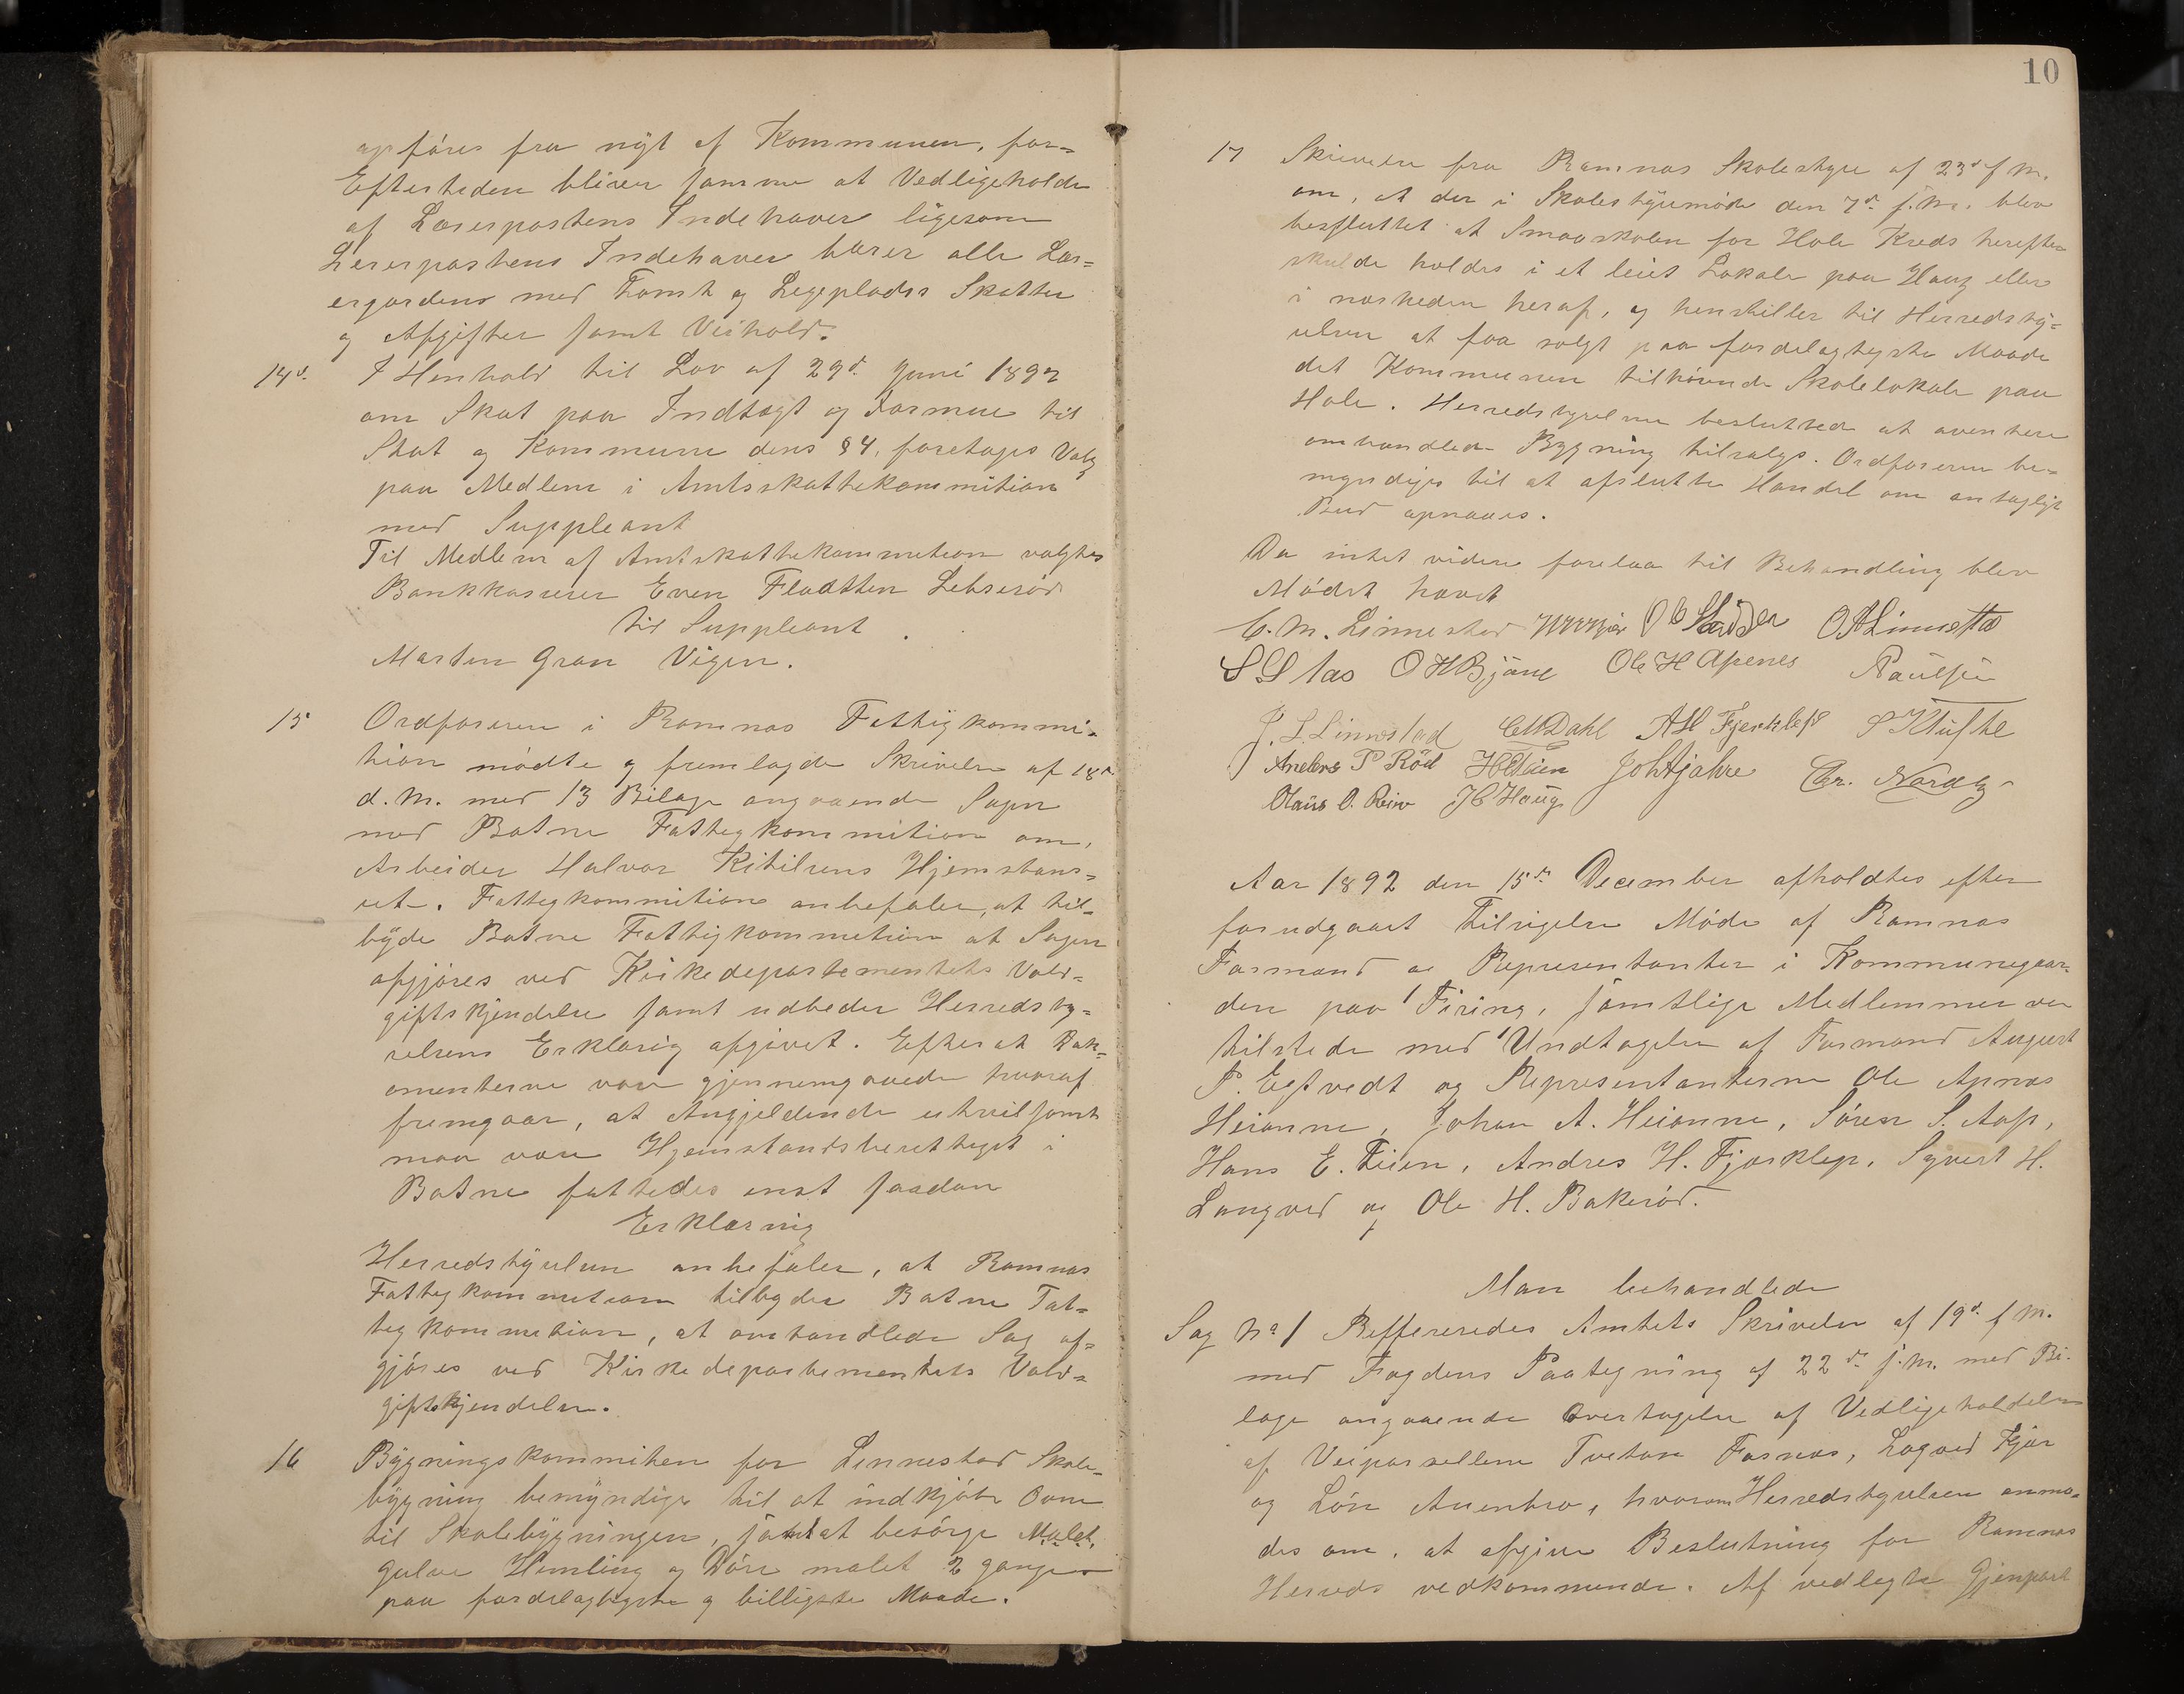 opføres fra nyt af Kommunen, for=
Eftertiden bliver samme at Vedligeholde
af Lærerpostens Indehaver ligesom
Lærerpostens Indehaver bærer alle Lær=
ergardens med Tomt og Legeplads Skatter
og Afgifter samt Veihold.
14d. I Henhold til Lov af 29d. Juni 1892
om Skat paa Indtægt og Formue til
Stat og Kommune dens § 4, foretages Valg
paa Medlem i Amtsskattekommition
med Suppleant
Til Medlem af Amtskattekommetion valgtes
Bankkaserer Even Fladtten Lebserød
til Suppleant
Marten Gran Vigen.
15 Ordføreren i Ramnæs Fattigkommi-
tion mødte og fremlagde Skrivelse af 18d
d.M. med 13 Bilage angaaende Sagen
med Botne Fattegkommition om,
Arbeider Halvor Kitilsens Hjemstavns=
ret. Fattegkommitione anbefaler, at til=
byde Botne Fattigkommetion at Sagen
afgjøres ved Kirkedepartementets Vold=
giftskjendelse samt udbeder Herredsty=
relsens Erklæring afgivet. Efterat Dok=
omenterne var gjennemgaaede hvoraf
fremgaar, at Angjeldende utvilsomt
maa være Hjemstavnsberettiget i
Botne fattedes enst saadan
Erklærnig
Herredstyrelsen anbefaler, at Ramnæs
Fattegkommetion tilbyder Botne Fat=
tegkommition, at omhandlede Sag af=
gjøres ved Kirkedepartementets Vold=
giftskjendelse.
16 Bygningskommiteen for Linnestad Skole-
bygning bemyndiges til at indkjøbe Ovne
til Skolebygningen, samt at besørge Malet,
gulve Himling og Døre malet 2 gange
paa fordelagtigste og billigste Maade.
10
17 Skrivelse fra Ramnæs Skolestyre af 23d f.M.
om, at der i Skolestyremøde den 7d. f.M. blev
besluttet at Smaaskolen for Hole Kreds herefter
skulde holdes i et leiet Lokale paa Haug eller
i nærheden heraf, og henstiller til Herredsty=
relsen at faa solgt paa fordelagtigste Maade
det Kommunen tilhørende Skolelokale paa
Hole. Herredstyrelsen besluttede at ovenhere
omhandlede Bygning tilsalgs. Ordføreren be=
myndiges til at afslutte Handel om antaglige
Bud opnaaes.
Da intet videre forelaa til Behandling blev
Mødet hævet
C. M. Linnestad
O H Bjøne Ole H Apenes Paulsen
J. L. Linnestad C M Dahl A H Fjerklep S Klufte
Anders P Rød H E Teien Joh Hjahre Chr.
Olaus O. Reiv J C Haug
Aar 1892 den 15de December afholdtes efter
forudgaaet Tilsigelse Møde af Ramnæs
Formand og Representanter i Kommunegaar-
den paa Firing, samtlige Medlemmer var
tilstede med Undtagelse af Formand August
P. Eegtvedt og Representanterne Ole Apnæs
Heianne, Johan A. Heianne, Søren S. Aas,
Hans E. Teien, Andres H. Fjærklep, Syvert H.
Langved og Ole H. Bakerød.
Man behandlede
Sag No 1 Refferseredes Amtets Skrivelse af 19d. f.M.
med Fogdens Paategning af 22de f.M. med Bi-
lage angaaende Overtagelse af Vedligeholdelsen
af Veiparsellerne Tvetan Fosnæs, Lagved Fjær
og Løvr Auenbro, hvorom Herredstyrelsen anmo-
des om, at afgive Beslutning for Ramnæs
Herreds vedkommende. Af vedlagte Gjenpart